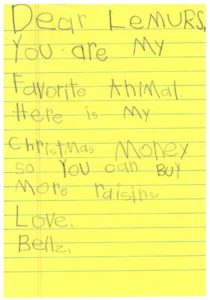 Dear LEMURS,
You are My
Favorite Animal.
Here is My
Christmas Money
so You can BUY
More raisins.
Love,
Bella,